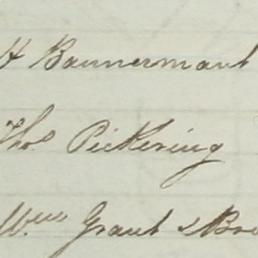 H Bannermant
Thos Pickering
Wm Grant & Bro